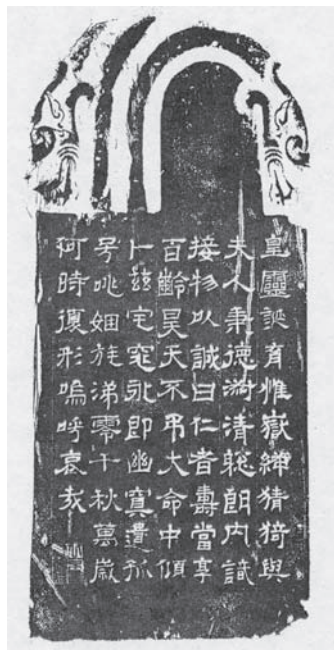 皇靈誕育惟嶽猗與
夫人秉德淵清聡朗內識
接物以誠曰仁者壽當享
百齡昊天不弔大命中傾
卜茲宅窀永即幽冥遺孤
号咷姻族涕零千秋萬歲
何時復形嗚呼哀哉